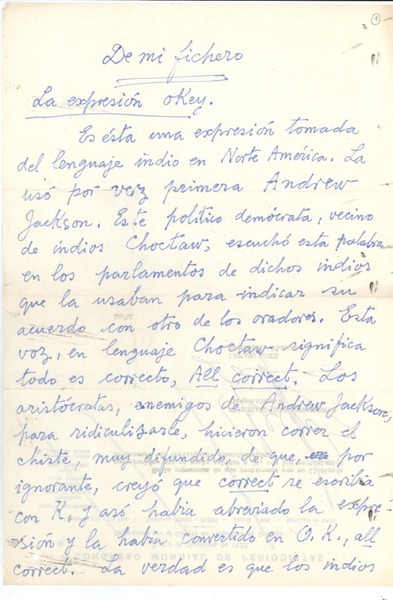 1
De mi fichero
La expresión oKey.
Es ésta una expresión tomada
del lenguaje indio en Norte América. La
usó por vez primera Andrew
Jackson. Este político demócrata, vecino
de indios Choctaw, escuchó esta palabra
en los parlamentos de dichos indios
que la usaban para indicar su
acuerdo con otro de los oradores. Esta
voz, en lenguaje Choctaw significa
todo es correcto, All correct. Los
aristócratas, enemigos de Andrew Jackson,
para ridiculizarle, hicieron correr el
chiste, muy difundido, de que, por
ignorante, creyó que correct se escribía
con K, y así había abreviado la expre-
sión y la había convertido en O.K., all
correct. La verdad es que los indios
CONGRESO MUNDIAL DE PERIODISTAS